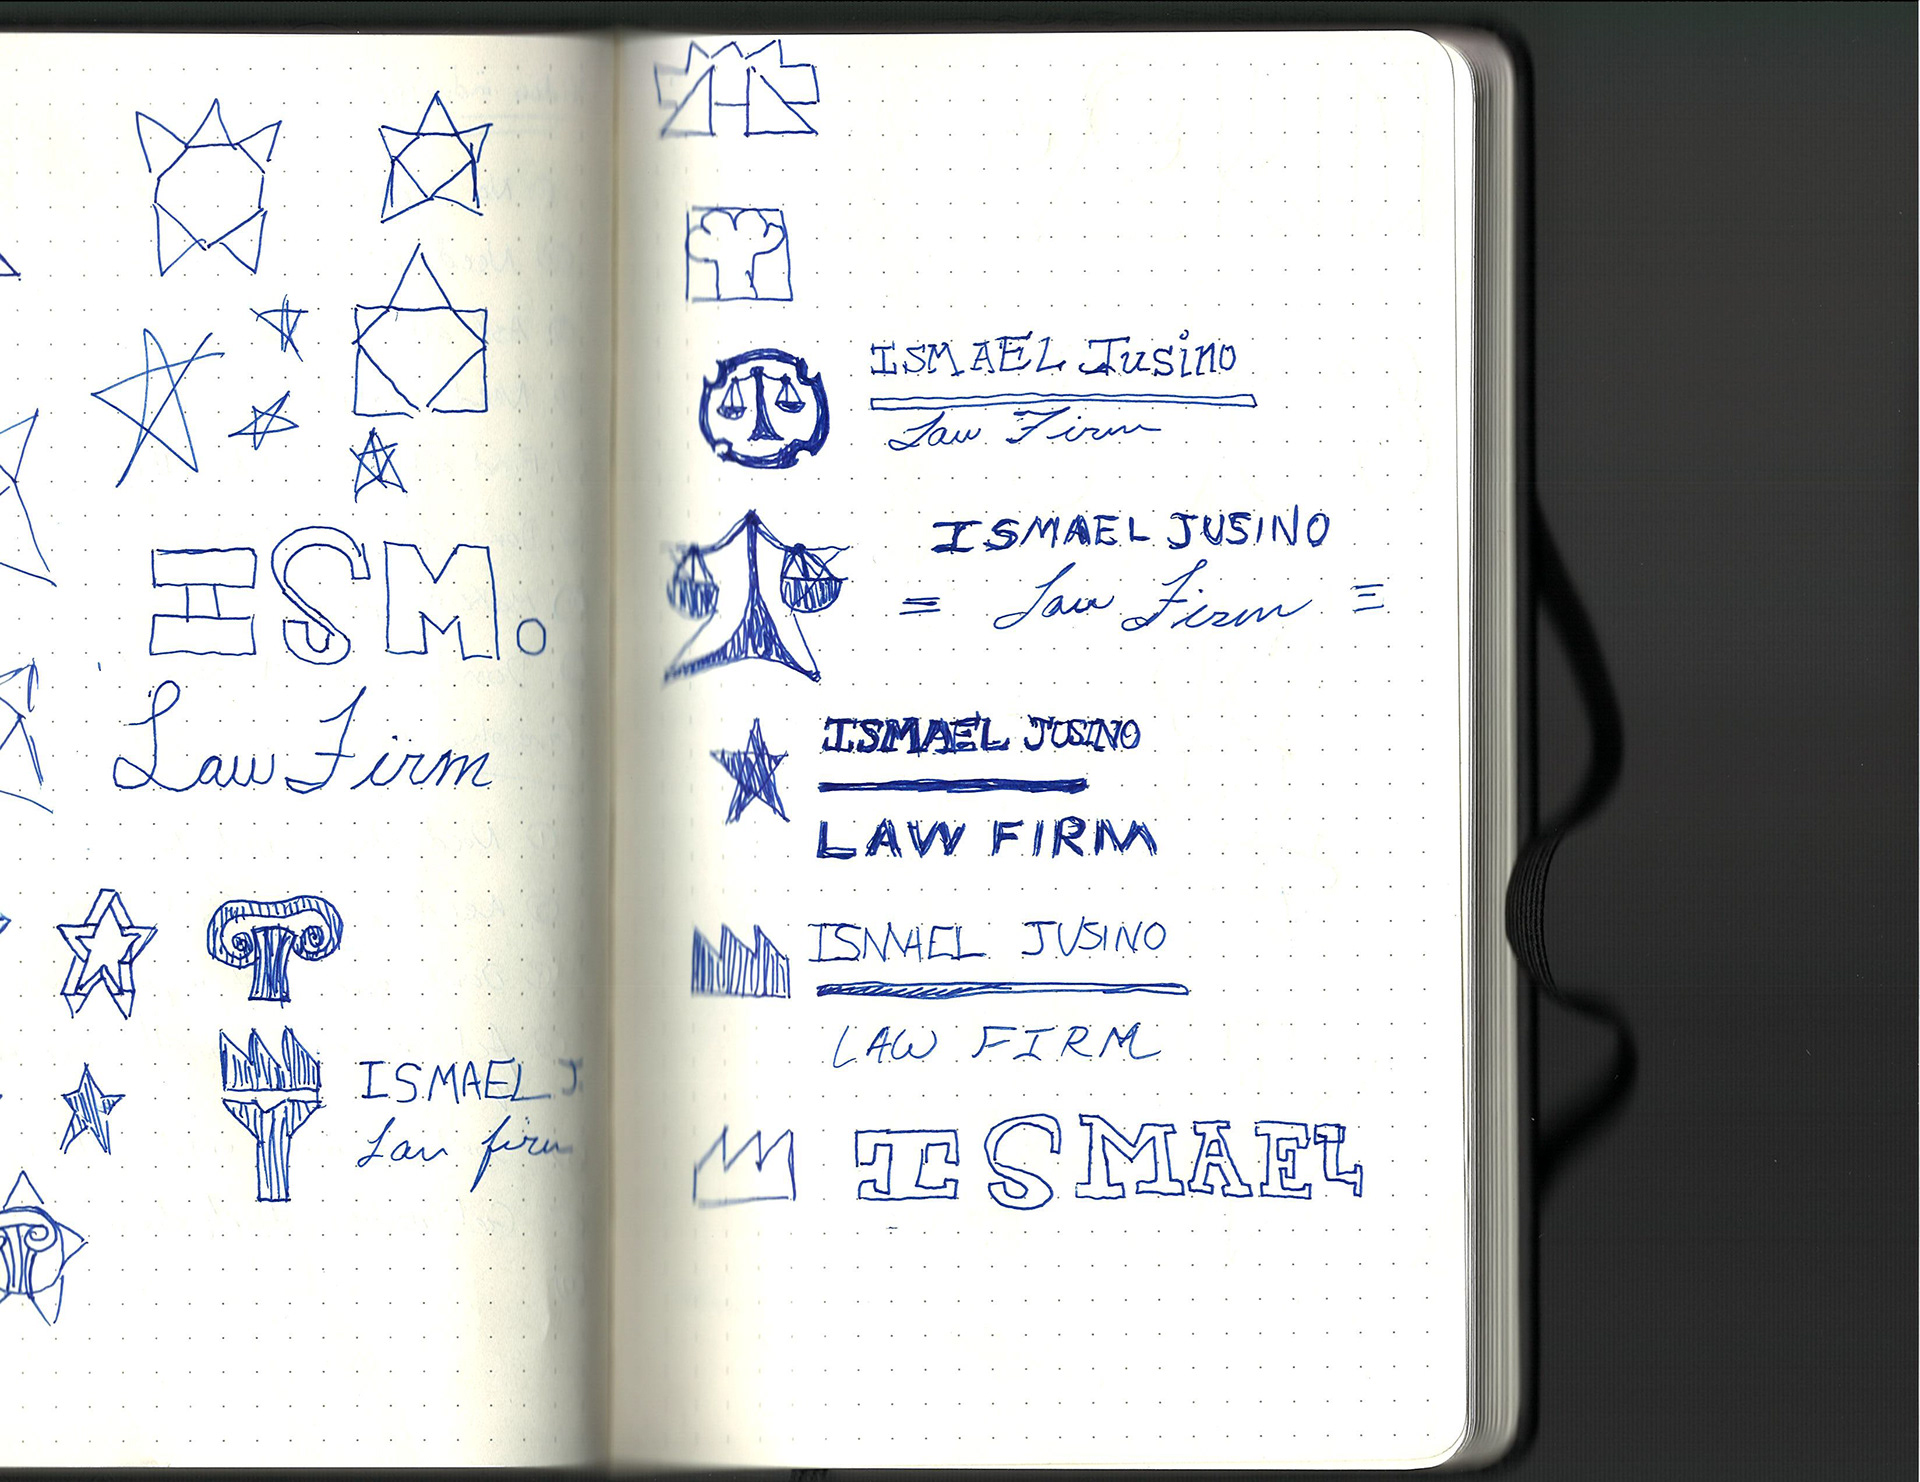 ISM.
Law Firm
ISMAEL J
Law firm
ISMAEL Jusino
Law Firm
ISMAEL JUSINO
= Law Firm =
ISMAEL JUSINO
LAW FIRM
ISMAEL JUSINO
LAW FIRM
ISMAEL